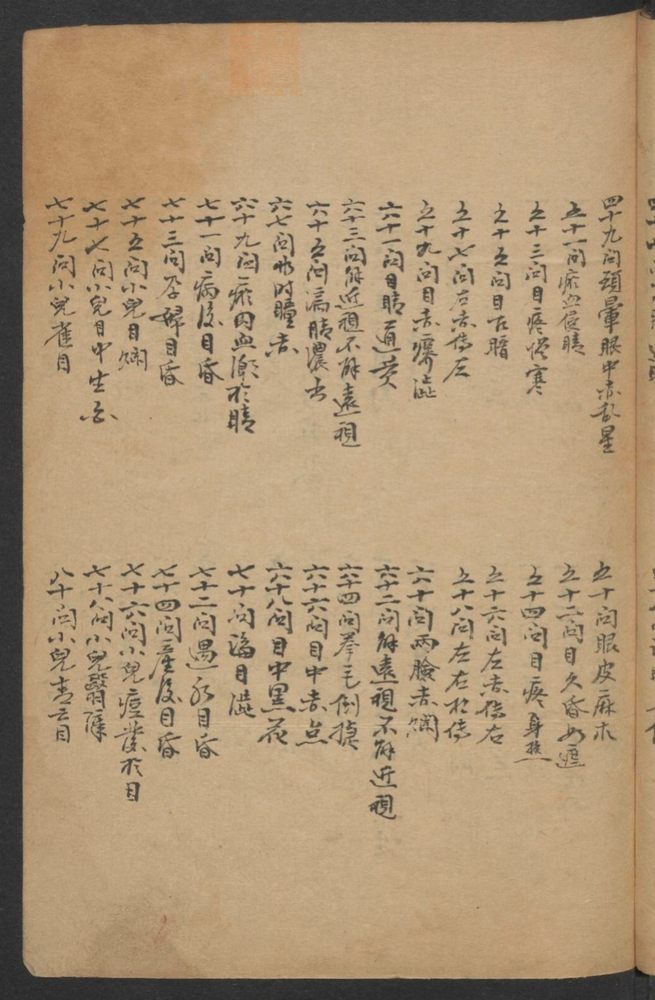 四十九问頭暈眼中赤乱星
五十问眼皮麻木
五十一问瘀血侵睛
五十二问目久昏如
五十三问目疼憎寒
五十四问目疼身热
五十五问目下暗
五十六问左赤传右
五十七问右赤传左
五十八问左右相传
五十九问目赤癢澁
六十问两臉赤烂
六十一问目睛通黄
六十二问能遠視不能近視
六十三问能近視不能遠視
六十四问拳毛倒
六十五问漏睛濃出
六十六问目中赤点
六七问时瞳赤
六十八问目中黑花
六十九问瘀肉血漸於睛
七十问目澁
七十一问病後目昏
七十二问遇夜目昏
七十三问孕婦目昏
七十四问產後目昏
七十五问小兒目烂
七十六问小兒痘發於目
七十七问小兒目中生
七十八问小兒翳障
七十九问小兒雀目
八十问小兒青盲目